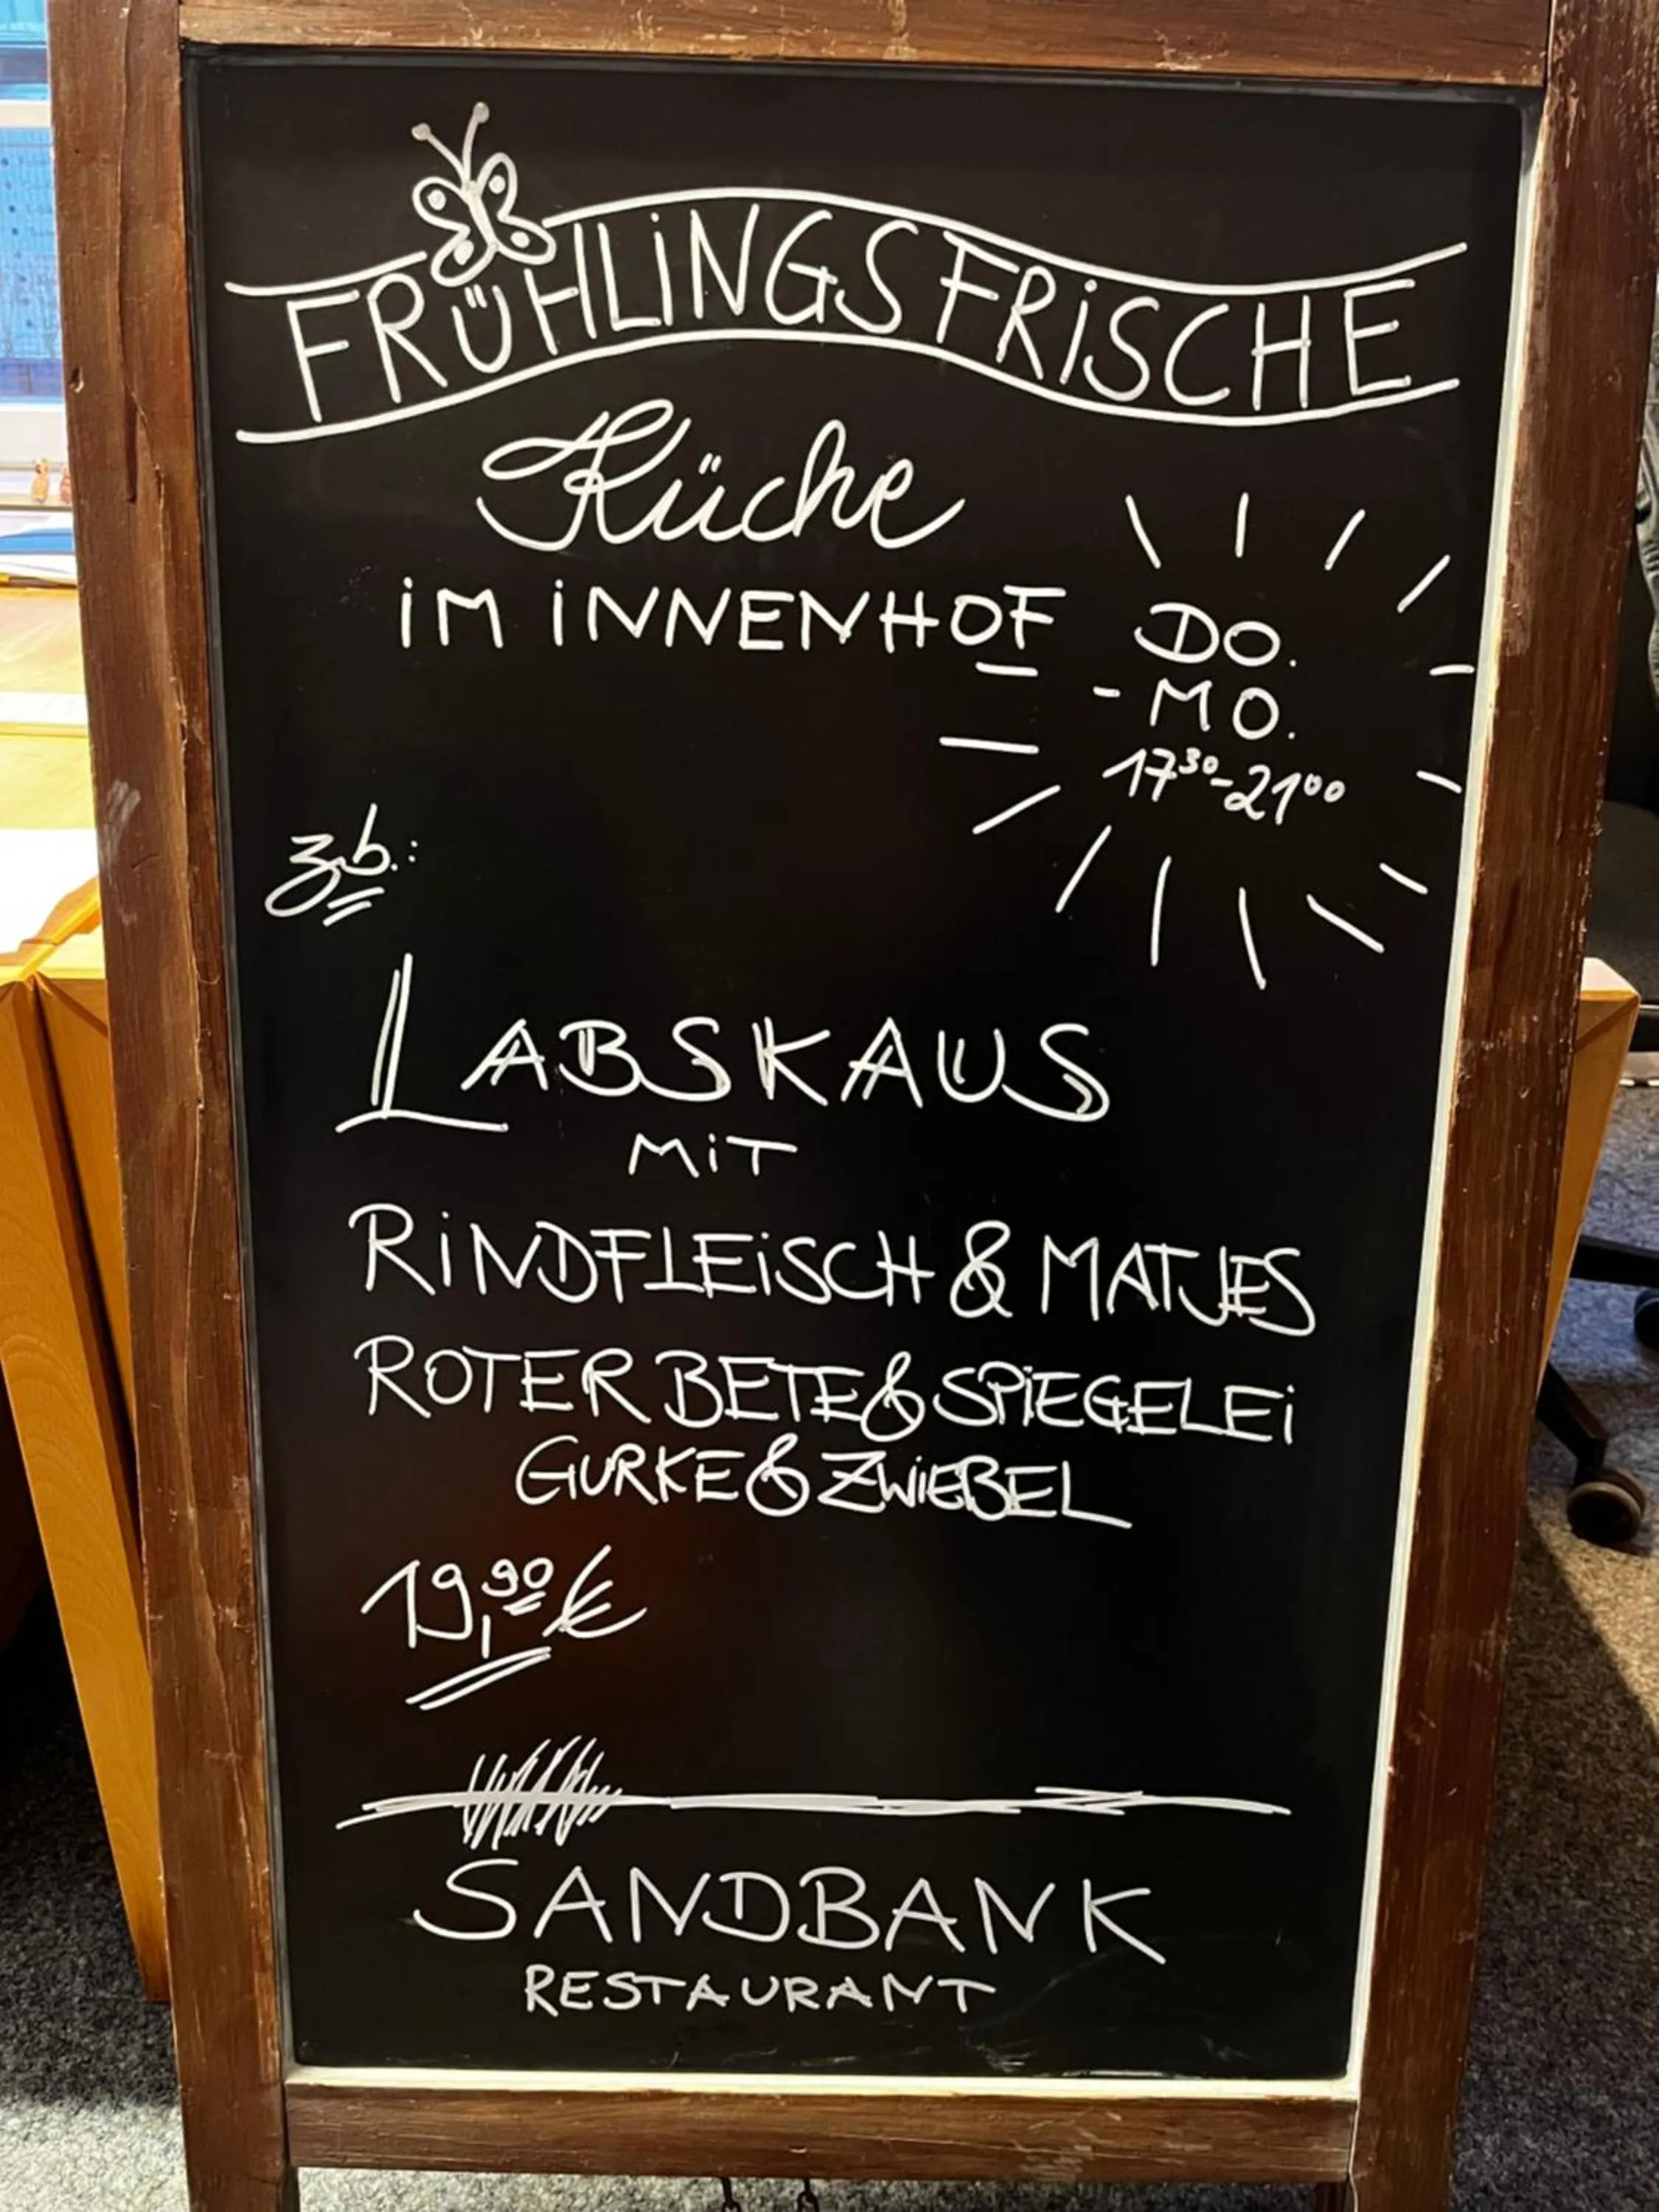 FRÜHLINGSFRISCHE
Küche
IM INNENHOF
DO.
- MO.
17³⁰-21⁰⁰
z.b.:
LABSKAUS
MIT
RINDFLEISCH & MATJES
ROTER BETE & SPIEGELEI
GURKE & ZWIEBEL
19,⁹⁰ €
SANDBANK
RESTAURANT